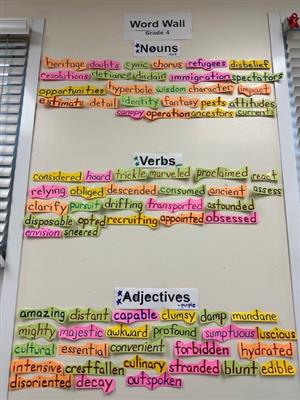 Word Wall
Grade 4
Nouns
heritage doubts cynic chorus refugees disbelief
resolutions defiance disdain immigration spectators
opportunities hyperbole wisdom character impact
estimate detail identity fantasy pests attitudes
canopy operation ancestors currents
Verbs
considered hoard trickle marveled proclaimed react
relying obliged descended consumed ancient assess
clarify pursuit drifting transported astounded
disposable opted recruiting appointed obsessed
envision sneered
Adjectives
amazing distant capable clumsy damp mundane
mighty majestic awkward profound sumptuous luscious
cultural essential convenient forbidden hydrated
intensive crestfallen culinary stranded blunt edible
disoriented decay outspoken